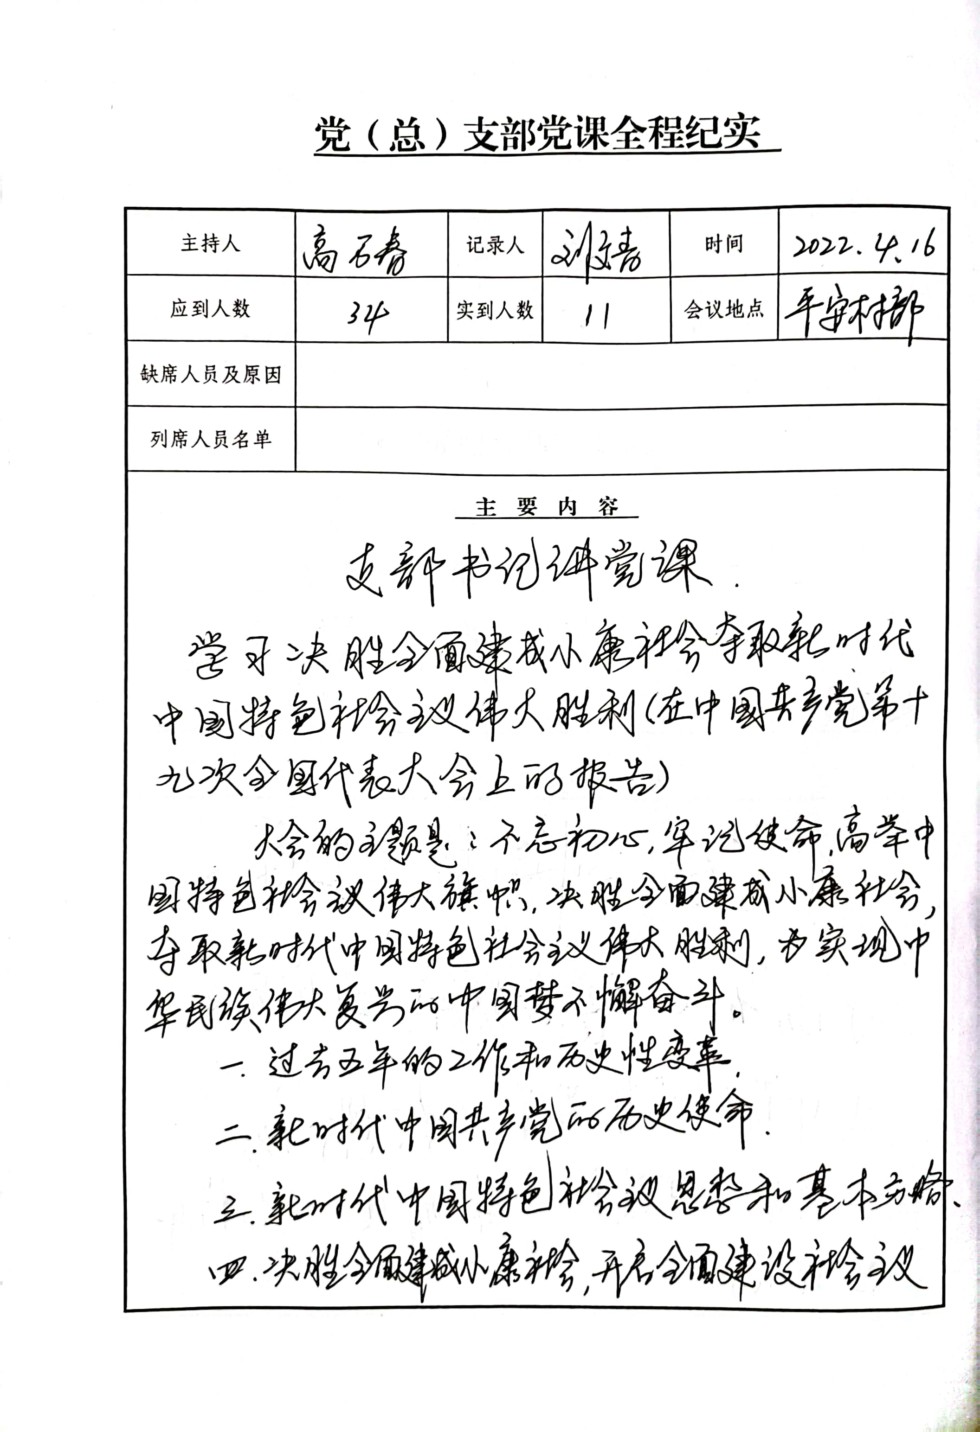 党（总）支部党课全程纪实
主持人 高石春 记录人 刘文青 时间 2022.4.16
应到人数 34 实到人数 11 会议地点 平安村部
缺席人员及原因
列席人员名单
主要内容
支部书记讲党课.
学习决胜全面建成小康社会夺取新时代
中国特色社会主义伟大胜利(在中国共产党第十
九次全国代表大会上的报告)
大会的主题是:不忘初心,牢记使命,高举中
国特色社会主义伟大旗帜,决胜全面建成小康社会,
夺取新时代中国特色社会主义伟大胜利,为实现中
华民族伟大复兴的中国梦不懈奋斗。
一.过去五年的工作和历史性变革.
二.新时代中国共产党的历史使命.
三.新时代中国特色社会主义思想和基本方略、
四.决胜全面建成小康社会,开启全面建设社会主义